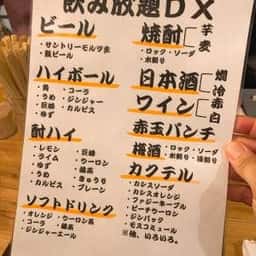 飲み放題DX
ビール
・サントリーモルツ
・瓶ビール
ハイボール
・角 ・コーラ
・うめ ・ジンジャー
・巨峰 ・カルピス
・ゆず
酎ハイ
・レモン ・巨峰
・ライム ・ウーロン
・ゆず ・緑茶
・うめ ・きゅうり
・カルピス ・プレーン
ソフトドリンク
・オレンジ ・ウーロン茶
・コーラ ・緑茶
・カルピス
・ジンジャーエール
焼酎 芋 麦
・ロック・ソーダ
・水割り
日本酒 燗 冷
ワイン 赤 白
赤玉パンチ
梅酒 ・ロック・ソーダ
・水割り
カクテル
・カシスソーダ
・カシスオレンジ
・ファジーネーブル
・ピーチウーロン
・ジンバック
・モスコミュール
※他、いろいろ。